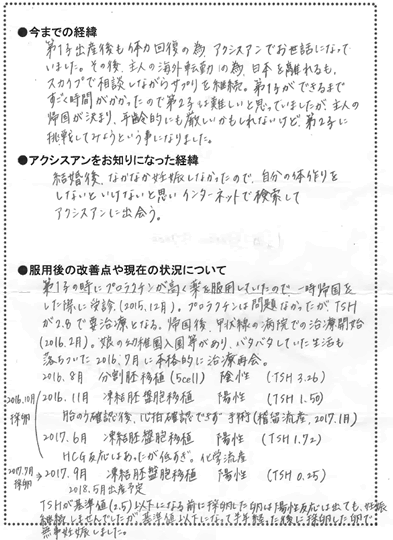 ●今までの経緯
第1子出産後も体力回復の為、アクシスアンでお世話になって
いました。その後、主人の海外転勤の為、日本を離れるも、
スカイプで相談しながらサプリを継続。第1子ができるまで
すごく時間がかかったので第2子は難しいと思っていましたが、主人の
帰国が決まり、年齢的にも厳しいかもしれないけど、第2子に
挑戦してみようという事になりました。
●アクシスアンをお知りになった経緯
結婚後、なかなか妊娠しなかったので、自分の体作りを
しないといけないと思いインターネットで検索して
アクシスアンに出会う。
●服用後の改善点や現在の状況について
第1子の時にプロラクチンが高く薬を服用していたので、一時帰国を
した際に受診(2015.12月)。プロラクチンは問題なかったが、TSH
が2.8で要治療となる。帰国後、甲状線の病院での治療開始
(2016.2月)。娘の幼稚園入園等があり、バタバタしていた生活も
落ちついた2016.7月に本格的に治療再会。
2016.8月 分割胚移植(5cell) 陰性 (TSH 3.26)
2016.10月 採卵
2016.11月 凍結胚盤胞移植 陽性 (TSH 1.50)
胎のう確認後、心拍確認できず手術(稽留流産、2017.1月)
2017.6月 凍結胚盤胞移植 陽性 (TSH 1.72)
HCG反応はあったが低すぎ。化学流産
2017.7月 採卵
2017.9月 凍結胚盤胞移植 陽性 (TSH 0.25)
2018.5月出産予定
TSHが基準値(2.5)以下になる前に採卵した卵は陽性反応は出ても、妊娠
継続しませんでしたが、基準値以下になって半年経った後に採卵した卵で
無事妊娠しました。